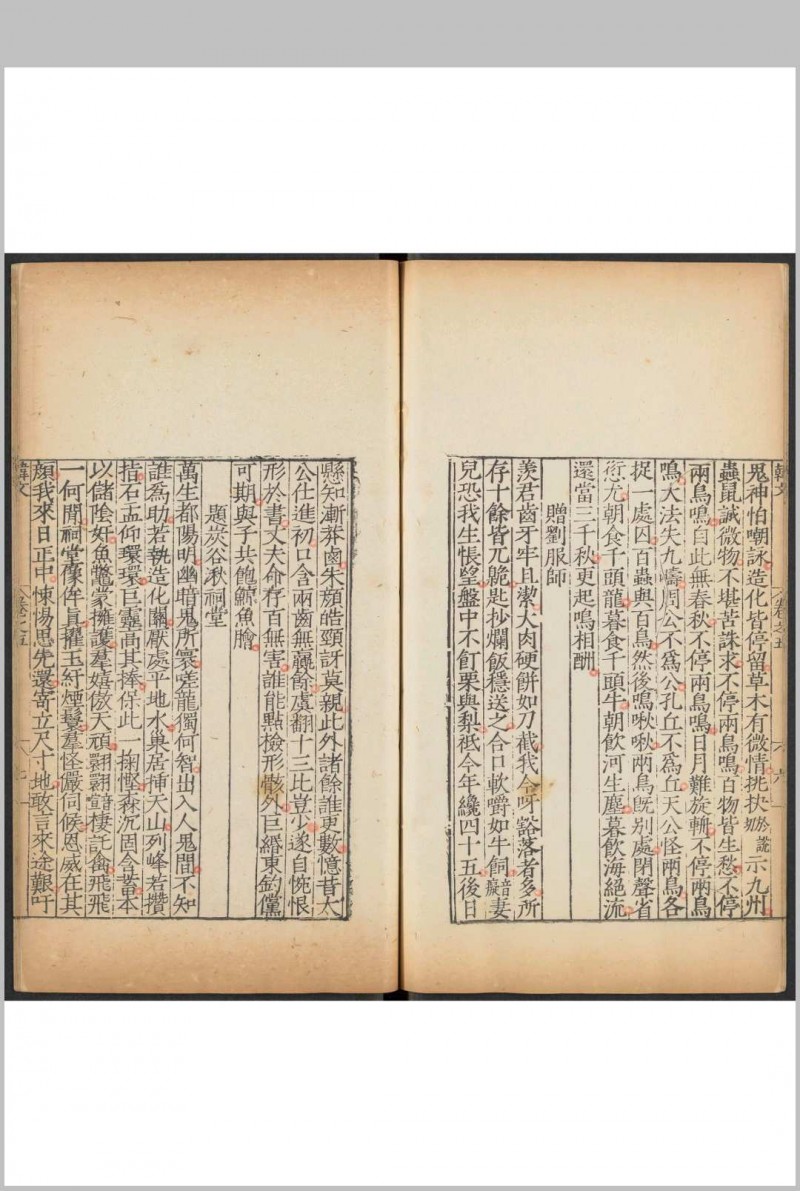 韓文　卷之五　六
鬼神怕嘲詠造化皆停留草木有微情挑抉於說切示九州
蟲鼠誠微物不堪苦誅求不停兩鳥鳴百物皆生愁不停
兩鳥鳴自此無春秋不停兩鳥鳴日月難旋輈不停兩鳥
鳴大法失九疇周公不爲公孔丘不爲丘天公怪兩鳥各
捉一處囚百蟲與百鳥然後鳴啾啾兩鳥旣别處閉聲省
愆尤朝食千頭龍暮食千頭牛朝飲河生塵暮飲海絕流
還當三千秋更起鳴相酬
贈劉服師
羨君齒牙牢且潔大肉硬餅如刀截我今呀豁落者多所
存十餘皆兀臲匙抄爛飯穩送之合口軟嚼如牛飼音癡妻
兒恐我生悵望盤中不飣栗與梨祗今年纔四十五後日
懸知漸莽鹵朱顔皓頸訝莫親此外諸餘誰更數憶昔太
公仕進初口含兩齒無贏餘虞翻十三比豈少遂自惋恨
形於書丈夫命存百無害誰能點檢形骸外巨緡東釣儻
可期與子共飽鯨魚膾
題炭谷湫祠堂
萬生都陽明幽暗鬼所寰嗟龍獨何智出入人鬼間不知
誰爲助若執造化關厭處平地水巢居揷天山列峰若攢
指石盂仰環環巨靈高其捧保此一掬慳森沉固含蓄本
以儲陰奸魚鼈蒙擁護羣嬉傲天頑翾翾暗棲託禽飛飛
一何閒祠堂像侔眞擢玉紆煙鬟羣怪儼伺候恩威在其
顔我來日正中悚惕思先還寄立尺寸地敢言來途艱吁
韓文　卷之五　七